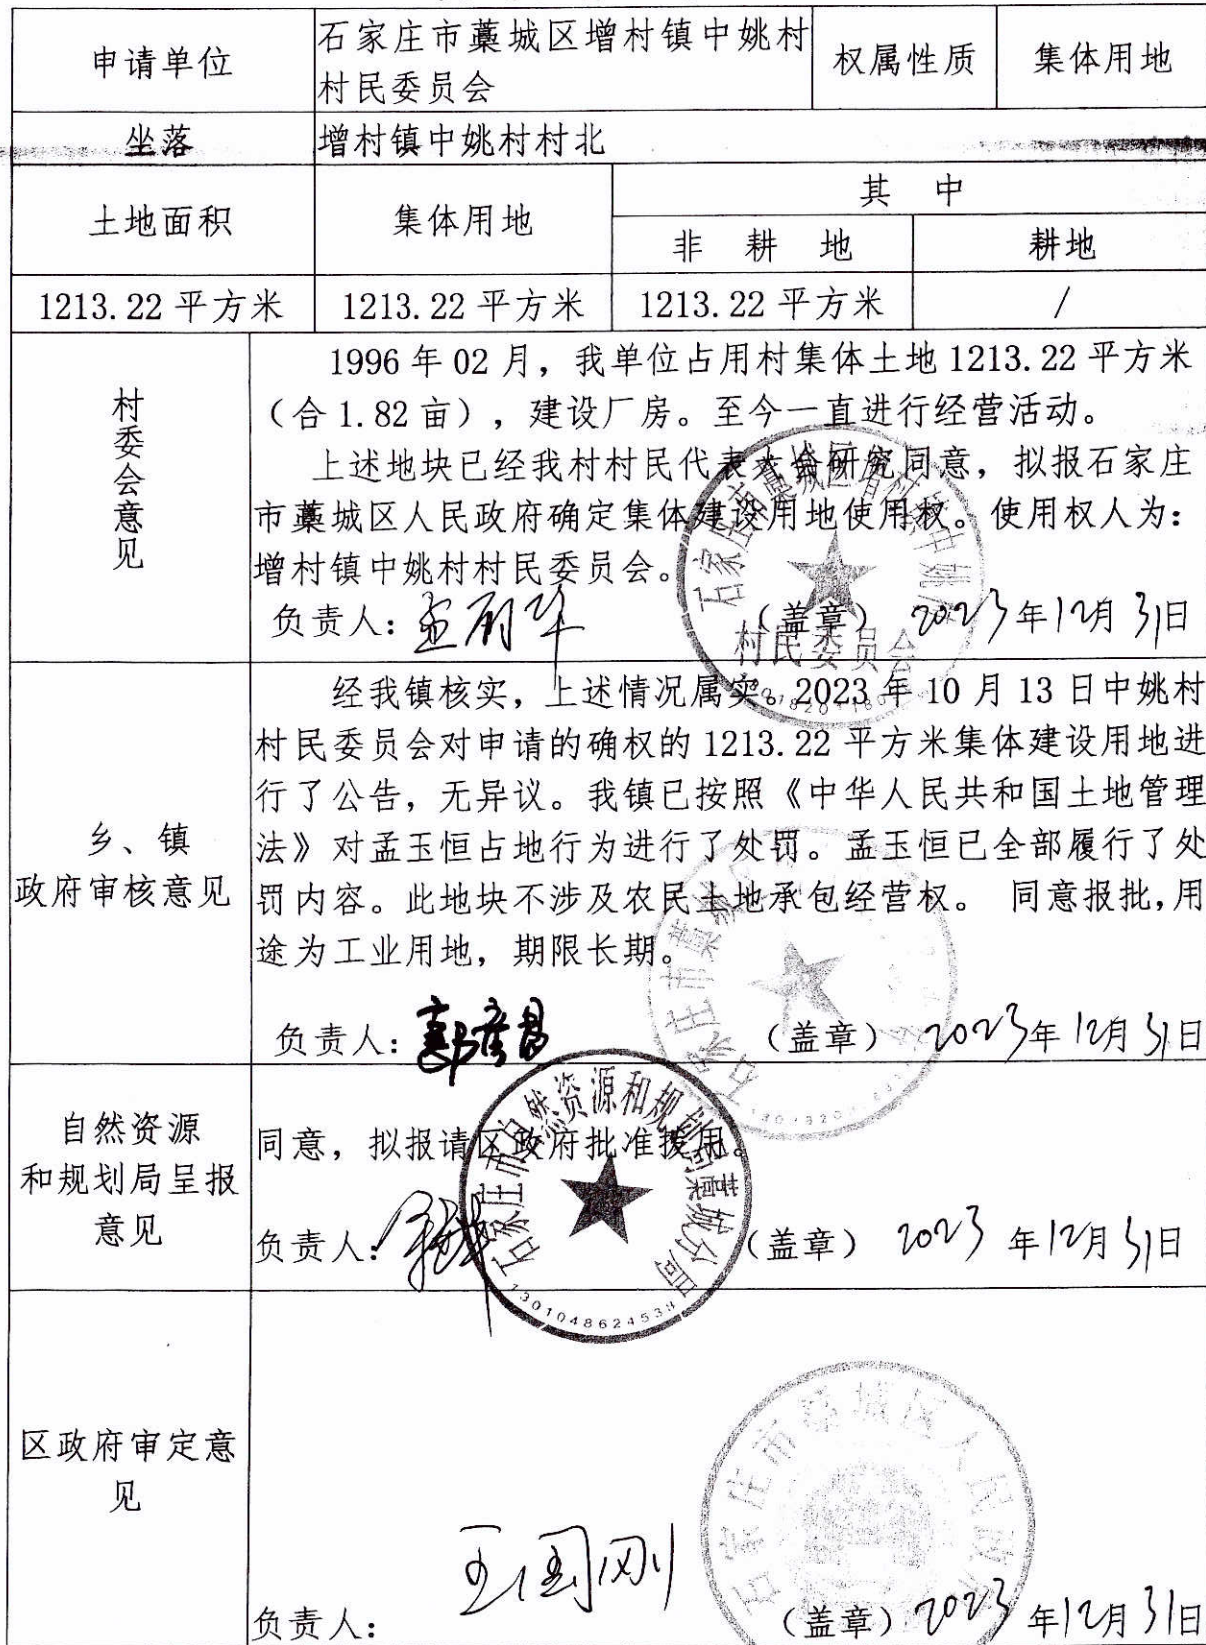 申请单位 石家庄市藁城区增村镇中姚村 权属性质 集体用地
村民委员会
坐落 增村镇中姚村村北
土地面积 集体用地 其 中
非 耕 地 耕地
1213.22平方米 1213.22平方米 1213.22平方米 /
村委会意见
1996年02月，我单位占用村集体土地1213.22平方米
（合1.82亩），建设厂房。至今一直进行经营活动。
上述地块已经我村村民代表大会研究同意，拟报石家庄
市藁城区人民政府确定集体建设用地使用权。使用权人为：
增村镇中姚村村民委员会。
负责人： （盖章） 2023年12月31日
村民委员会
乡、镇
政府审核意见
经我镇核实，上述情况属实。2023年10月13日中姚村
村民委员会对申请的确权的1213.22平方米集体建设用地进
行了公告，无异议。我镇已按照《中华人民共和国土地管理
法》对孟玉恒占地行为进行了处罚。孟玉恒已全部履行了处
罚内容。此地块不涉及农民土地承包经营权。 同意报批，用
途为工业用地，期限长期。
负责人： （盖章） 2023年12月31日
自然资源
和规划局呈报
意见
同意，拟报请区政府批准拨用。
石家庄市自然资源和规划局藁城分局
负责人： （盖章） 2023年12月31日
1301048624538
区政府审定意
见
石家庄市藁城区人民政府
王国刚
负责人： （盖章）2023年12月31日